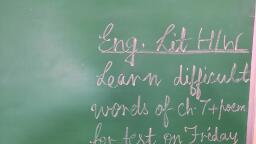 Eng. Lit H/W
Learn difficult
words of ch-7+poem
for test on Friday